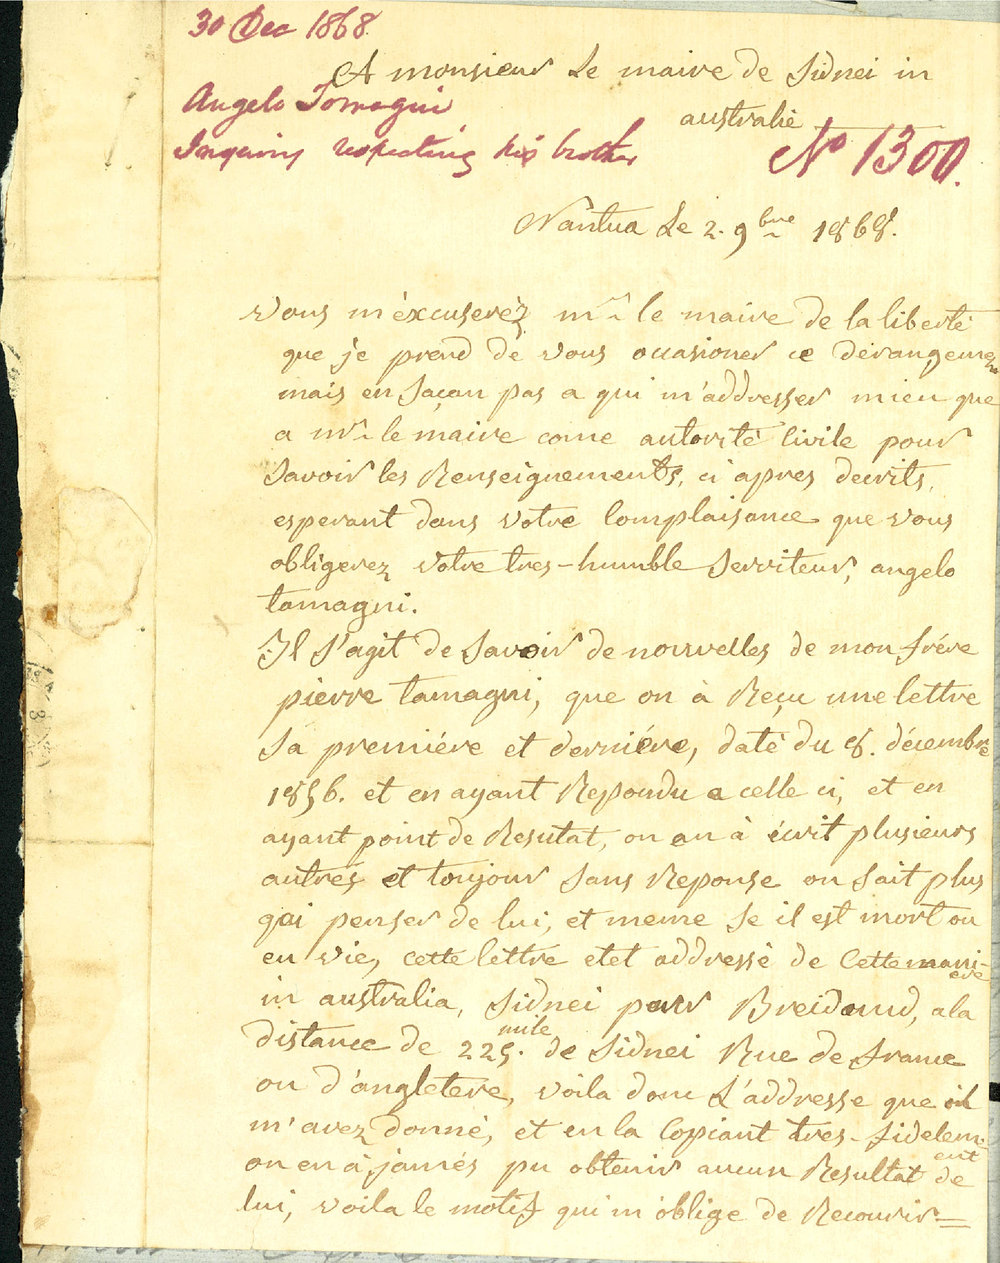 30 Dec 1868
A monsieur Le maire de Sidnei in
australie
Angelo Tomagni
Inquiry respecting his brother
No 1300.
Nantua Le 2. 9bre 1868.
vous m'éxcuserèz mr le maire de la libertè
que je prend de vous occasioner ce dérangemen
mais en saçan pas a qui m'addresser mieu que
a mr le maire come autorité Civile pour
savoir les Renseignements, ci apres decrits,
esperant dans votre Complaisance que vous
obligerez votre tres-humble serviteur, angelo
tamagni.
Il s'agit de savoir de nouvelles de mon frére
pierre tamagni, que on à Reçu une lettre
sa premiére et derniére, datè du 8. décembre
1856. et en ayant Repondu a celle ci, et en
ayant point de Resutat, on an à écrit plusieurs
autres et toujour sans Reponse on sait plus
qai penser de lui, et meme se il est mort ou
en vie, cette lettre etet addressè de Cette maniere
in australia, Sidnei pour Breidoud, a la
distance de 225. mile de Sidnei Rue de france
ou d'angletere, voila donc L'addresse que il
m'avez donné, et en la Copiant tres-fidelement
on en à jamés pu obtenir aucun Resultat de
lui, voila le motif qui m'oblige de Recourir=